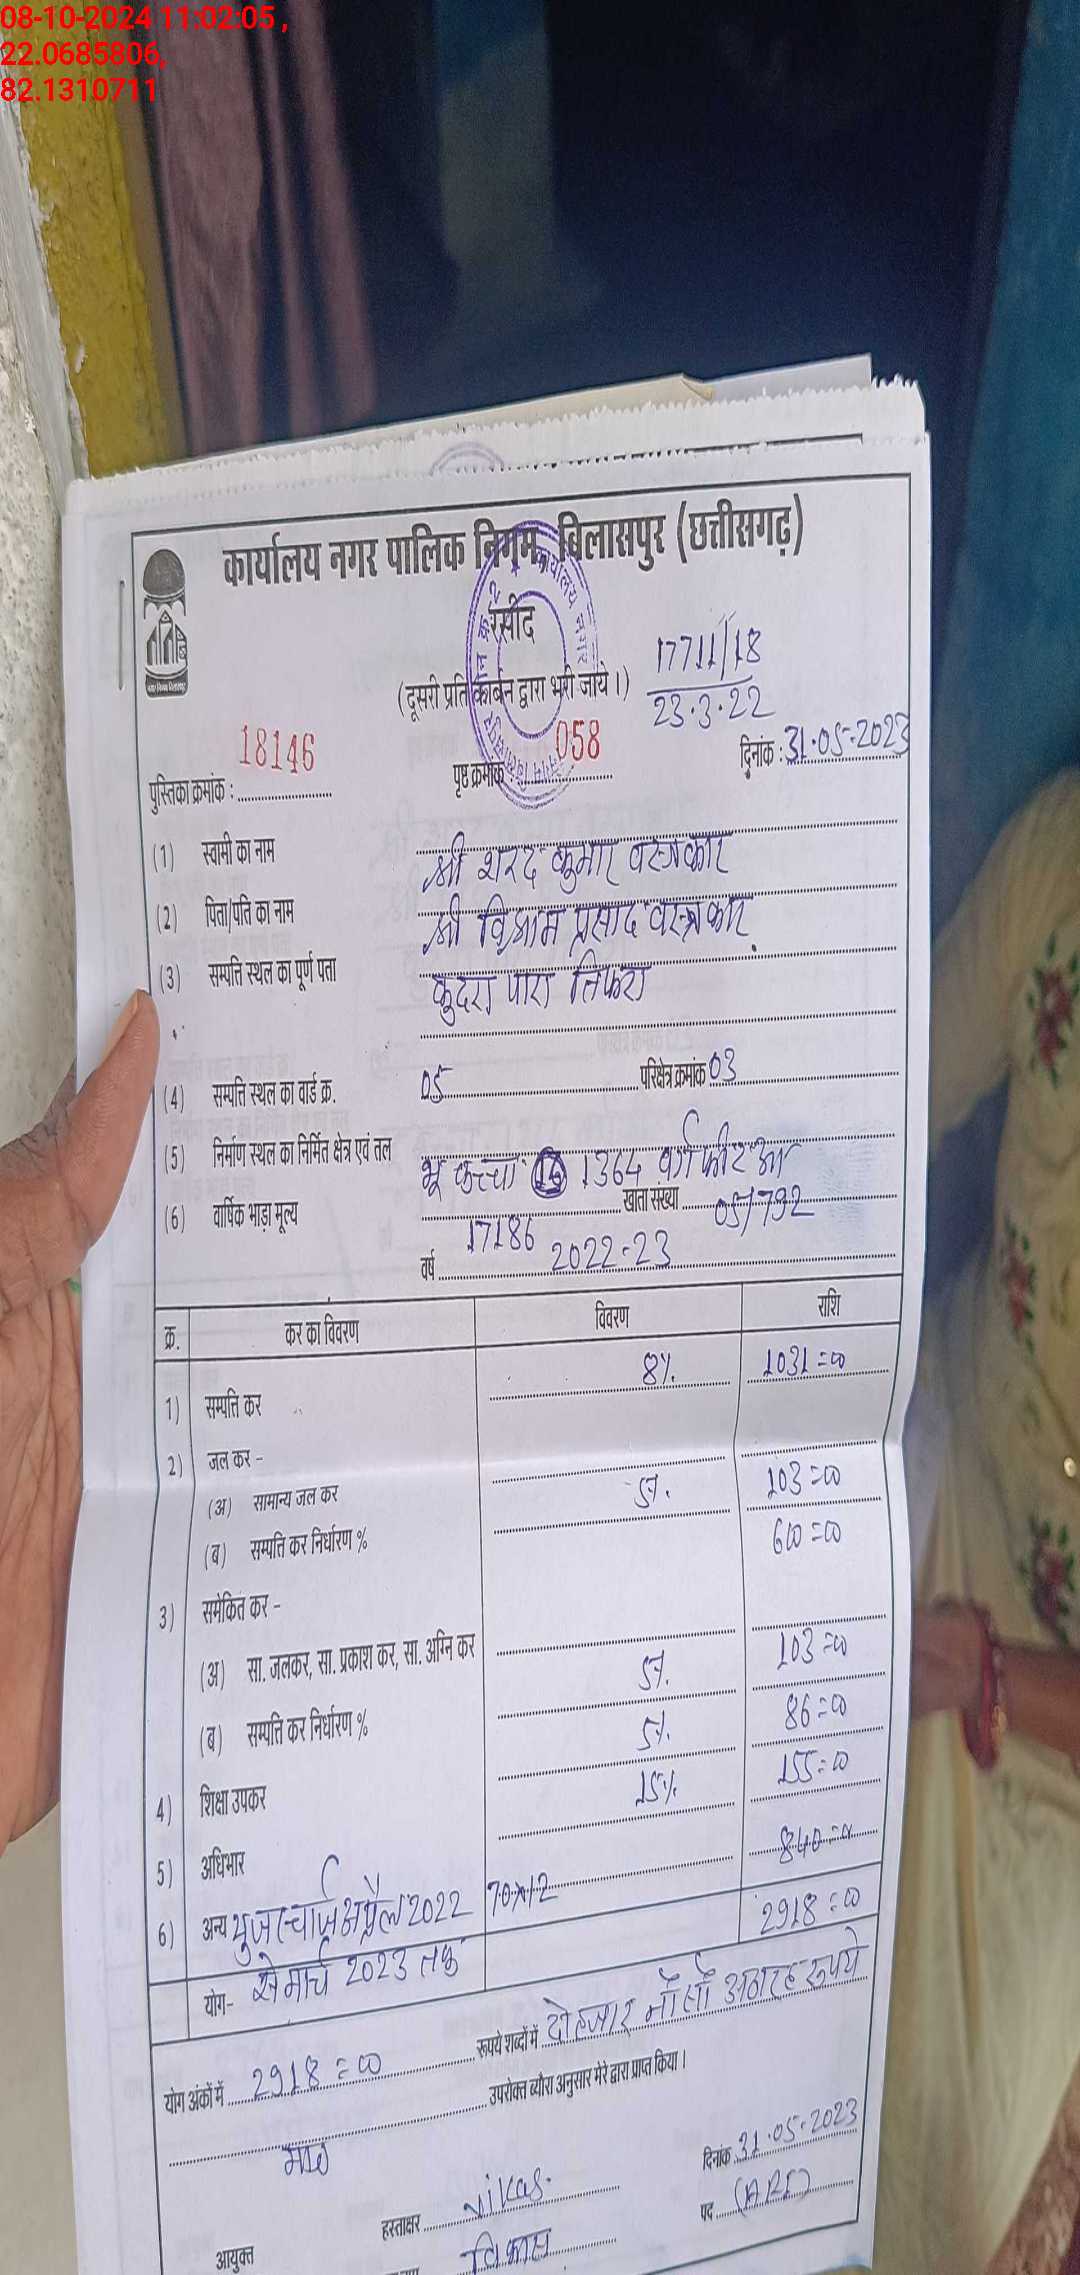 08-10-2024 11:02:05 ,
22.0685806,
82.1310711
कार्यालय नगर पालिक निगम, बिलासपुर (छत्तीसगढ़)
रसीद
(दूसरी प्रति कार्बन द्वारा भरी जाये।)
17711/18
23.3.22
पुस्तिका क्रमांक : 18146 पृष्ठ क्रमांक 058 दिनांक : 31.05.2023
(1) स्वामी का नाम श्री शरद कुमार वस्त्रकार
(2) पिता/पति का नाम श्री विश्राम प्रसाद वस्त्रकार
(3) सम्पत्ति स्थल का पूर्ण पता कुदरा पारा तिफरा
(4) सम्पत्ति स्थल का वार्ड क्र. 05 परिक्षेत्र क्रमांक 03
(5) निर्माण स्थल का निर्मित क्षेत्र एवं तल भू कच्चा 1364 वर्ग फीट आ
(6) वार्षिक भाड़ा मूल्य 17186 खाता संख्या 05/792
वर्ष 2022-23
क्र. कर का विवरण विवरण राशि
1) सम्पत्ति कर 8% 1031=00
2) जल कर -
(अ) सामान्य जल कर 5%. 103=00
(ब) सम्पत्ति कर निर्धारण % 600=00
3) समेकित कर -
(अ) सा. जलकर, सा. प्रकाश कर, सा. अग्नि कर 5%. 103=00
(ब) सम्पत्ति कर निर्धारण % 5%. 86=00
4) शिक्षा उपकर 15% 155=00
5) अधिभार 840=00
6) अन्य युजर चार्ज अप्रैल 2022 70x12 2918=00
योग- से मार्च 2023 तक
योग अंकों में 2918=00 रूपये शब्दों में दो हजार नौ सौ अठारह रूपये
उपरोक्त ब्यौरा अनुसार मेरे द्वारा प्राप्त किया।
मात्र
दिनांक 31.05.2023
हस्ताक्षर vikas. पद (ARI)
आयुक्त विकास